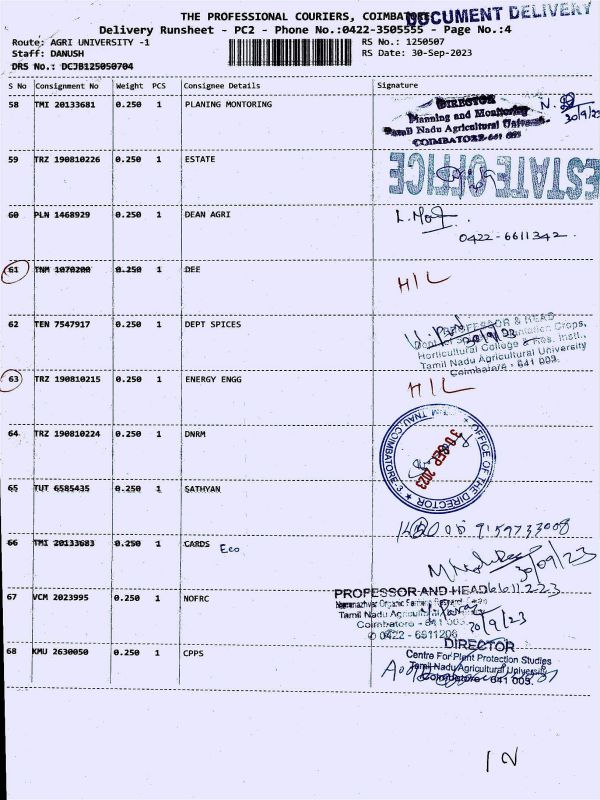 THE PROFESSIONAL COURIERS, COIMBATORE
DOCUMENT DELIVERY
Delivery Runsheet - PC2 - Phone No.:0422-3505555 - Page No.:4
Route: AGRI UNIVERSITY -1 RS No.: 1250507
Staff: DANUSH RS Date: 30-Sep-2023
DRS No.: DCJB125050704
S No Consignment No Weight PCS Consignee Details Signature
58 TMI 20133681 0.250 1 PLANING MONTORING
DIRECTOR
Planning and Monitoring
Tamil Nadu Agricultural
COIMBATORE-641 003
30/9/23
59 TRZ 190810226 0.250 1 ESTATE
ESTATE OFFICE
60 PLN 1468929 0.250 1 DEAN AGRI
0422-6611342.
61 TNM 1070200 0.250 1 DEE
H/L
62 TEN 7547917 0.250 1 DEPT SPICES
PROFESSOR & HEAD
30/9/23
Horticultural College & Res. Instt.,
Tamil Nadu Agricultural University
Coimbatore - 641 003.
63 TRZ 190810215 0.250 1 ENERGY ENGG
H/L
64 TRZ 190810224 0.250 1 DNRM
OFFICE OF THE DIRECTOR
TNAU, COIMBATORE-3
30 SEP 2023
65 TUT 6585435 0.250 1 SATHYAN
9159733008
66 TMI 20133683 0.250 1 CARDS Eco
30/09/23
6611223
67 VCM 2023995 0.250 1 NOFRC
PROFESSOR AND HEAD
Tamil Nadu
Coimbatore - 641 003.
0422 - 6611206
30/9/23
68 KMU 2630050 0.250 1 CPPS
DIRECTOR
Centre For Plant Protection Studies
Tamil Nadu Agricultural University
Coimbatore - 641 003.